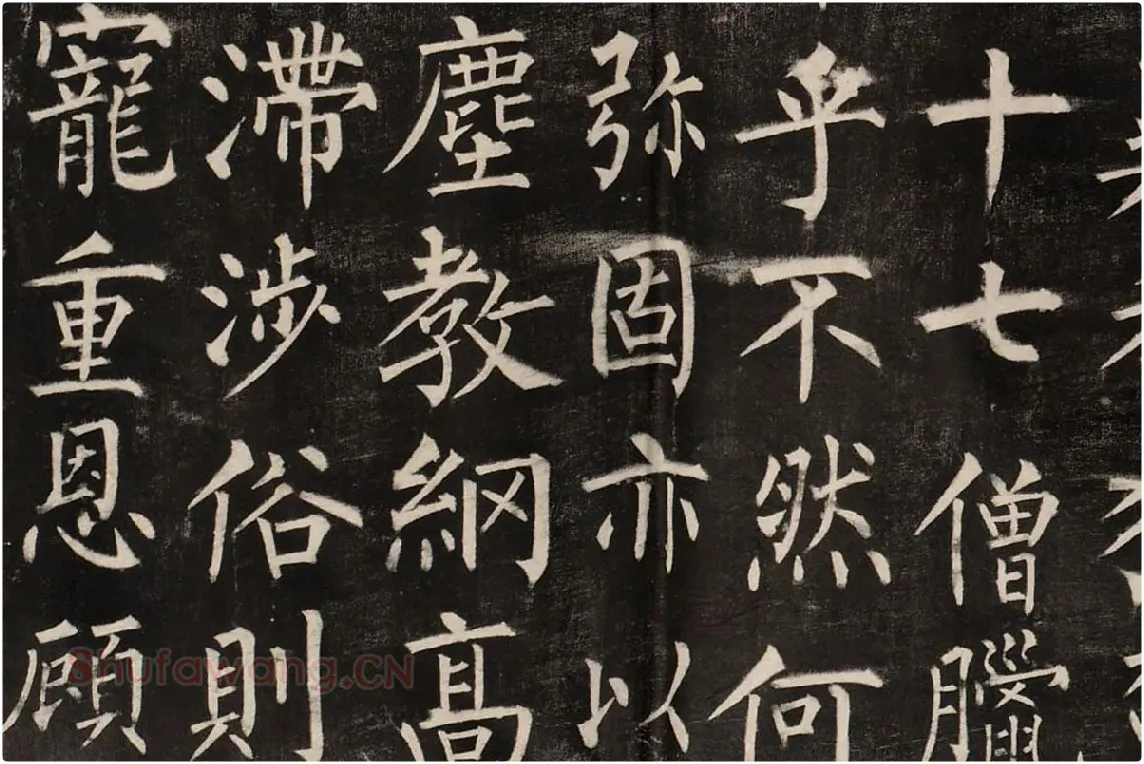 十七僧臘
乎不然何
弥固亦以
塵教綱高
滯涉俗則
寵重恩顧
Shufawang.CN